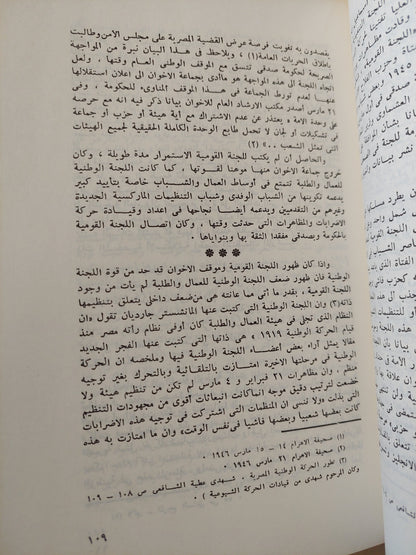 يقصدون به تفويت فرصة عرض القضية المصرية على مجلس الأمن وطالبت
باطلاق الحريات العامة (١) ، ويلاحظ في هذا البيان نبرة من المواجهة
الصريحة لحكومة صدقى تتسق مع الموقف الوطنى العام وقتها ، ولعل
اتجاه اللجنة الى هذه المواجهة هو ما أدى بجماعة الاخوان الى اعلان استقلالها
عنها لعدم تورط الجماعة في هذا الموقف المناوىء للحكومة . وفي
٢١ مارس أصدر مكتب الارشاد العام للاخوان بيانا ذكر فيه انه مع حرصه
على وحدة الأمة « يعتذر عن عدم الاشتراك مع أية هيئة أو حزب أو جماعة
في تشكيلات أو لجان لا تحمل طابع الوحدة الكاملة الحقيقية لجميع الهيئات
التى تمثل الشعب ٠٠ » (٢)
والحاصل أن لم يكتب للجنة القومية الاستمرار مدة طويلة ، وكان
خروج جماعة الاخوان منها موهنا لقوتها ، كما كانت اللجنة الوطنية
للعمال والطلبة تتمتع في أوساط العمال والشباب خاصة بتأييد كبير
يدعمه تكوينها من الشباب الوفدى وشباب التنظيمات الماركسية الجديدة
وغيرهم من التقدميين ويدعمه أيضا نجاحها في اعداد وقيادة حركة
الاضرابات والمظاهرات التى حدثت وقتها ، وكان اتصال اللجنة القومية
بالحكومة وبصدقى مفقدا الثقة بها وبنواياها .
***
واذا كان ظهور اللجنة القومية وموقف الاخوان قد حد من قوة اللجنة
الوطنية فان ظهور ضعف اللجنة الوطنية للعمال والطلبة لم يأت من وجود
اللجنة القومية ، بقدر ما أتى مما عانته هى من ضعف داخلى يتعلق بتنظيمها
ذاته (٣) وان اللجنة الوطنية التى كتبت عنها المانشستر جارديان تقول « ان
النظام الذى تجلى في هيئة العمال والطلبة كان أوفى نظام رأته مصر منذ
قيام الحركة الوطنية ١٩١٩ » هى ذاتها التى كتبت عنها الفجر الجديد
مقالا يمثل آراء بعض أعضاء اللجنة الوطنية فيها وملخصه ان الحركة
الوطنية في مرحلتها الأخيرة امتازت بالتلقائية وبالتحرك بغير توجيه
منظم ، وان مظاهرات ٢١ فبراير و ٤ مارس لم تكن من تنظيم هيئة ولا
خضعت لترتيب دقيق موجه انما كانت انبعاثات أقوى من مجهودات التنظيم
التى بذلت ولا تنسى ان المنظمات التى اشتركت في توجيه هذه الاضرابات
كانت بعضها شعبيا وبعضها فاشيا في نفس الوقت ، وان ما امتازت به هذه
(١) صحيفة الاهرام ١٤ – ١٥ مارس ١٩٤٦ .
(٢) صحيفة الاهرام ٢١ مارس ١٩٤٦ .
(٣) تطور الحركة الوطنية المصرية . شهدى عطية الشافعى ص ١٠٨ – ١٠٩
وكان المرحوم شهدى من قيادات الحركة الشيوعية ) .
١٠٩